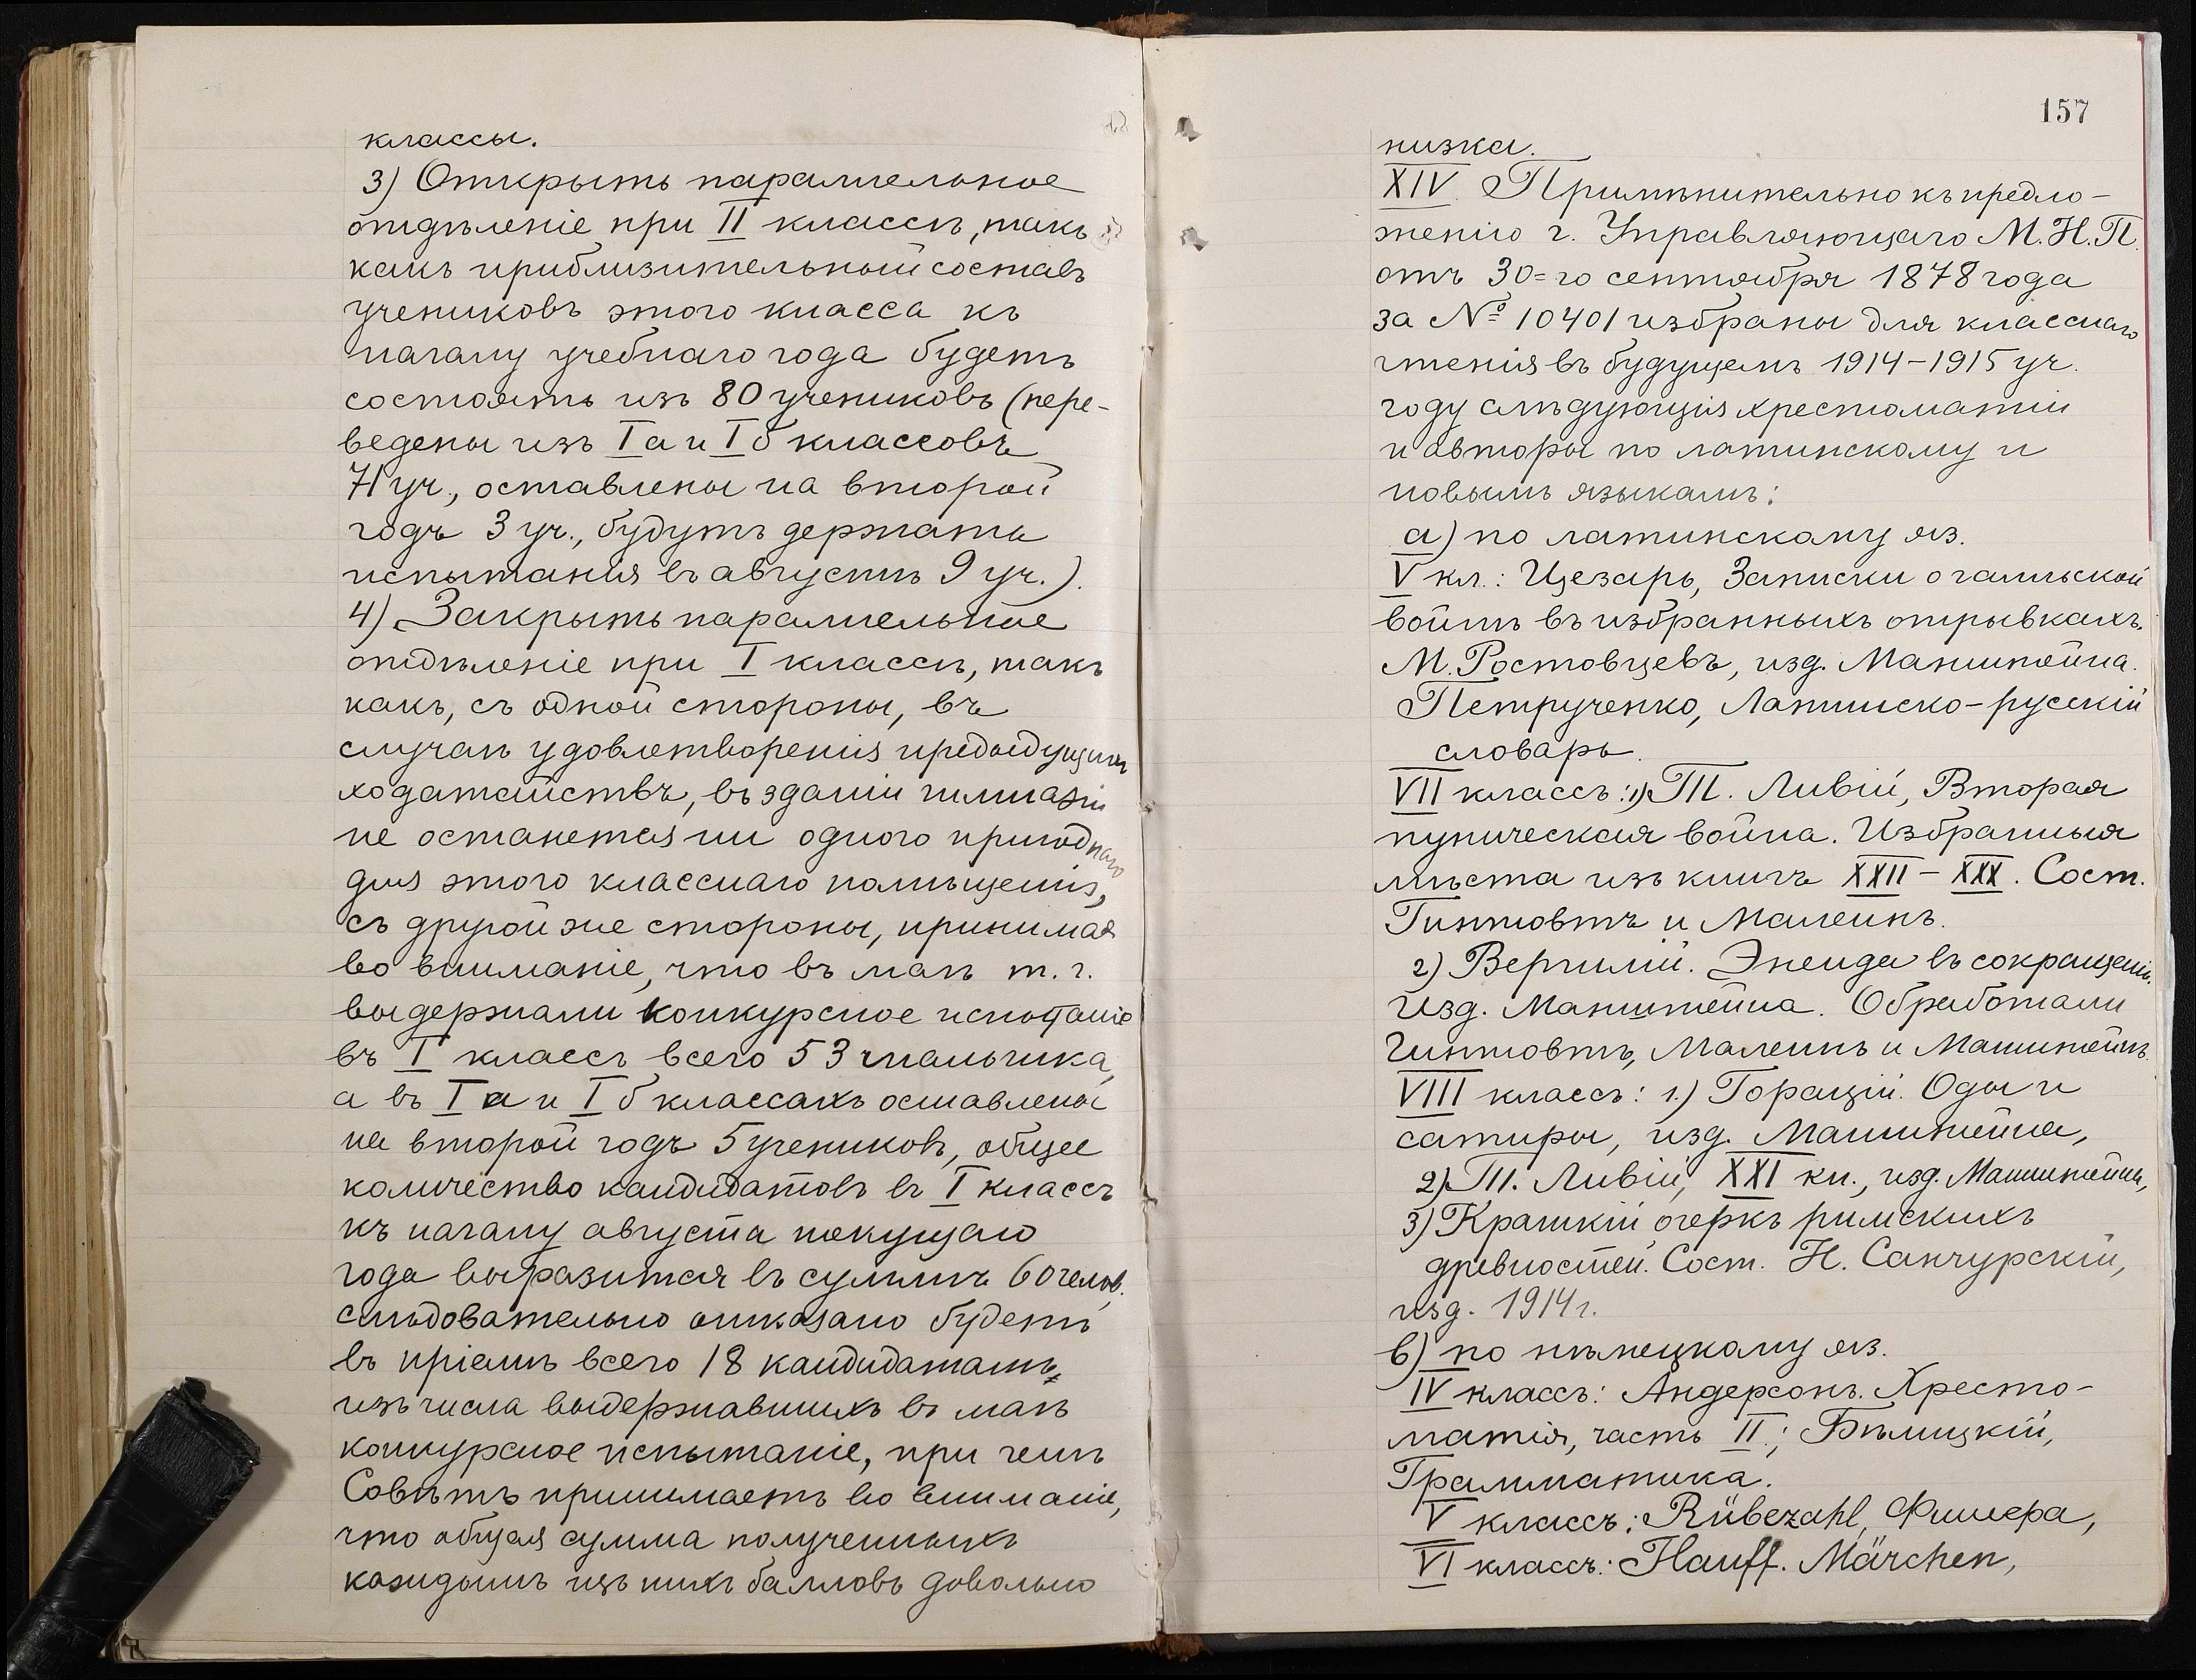 классы.
3) Открыть параллельное
отдѣленіе при II классѣ, такъ
какъ приблизительный составъ
учениковъ этого класса къ
началу учебнаго года будетъ
состоять изъ 80 учениковъ (пере-
ведены изъ Iа и Iб классовъ
71 уч., оставлены на второй
годъ 3 уч., будутъ держать
испытанія въ августѣ 9 уч.).
4) Закрыть параллельное
отдѣленіе при I классѣ, такъ
какъ, съ одной стороны, въ
случаѣ удовлетворенія предыдущихъ
ходатайствъ, въ зданіи гимназіи
не останется ни одного пригоднаго
для этого класснаго помѣщенія,
съ другой же стороны, принимая
во вниманіе, что въ маѣ т. г.
выдержали конкурсное испытаніе
въ I классъ всего 53 мальчика,
а въ Iа и Iб классахъ оставлены
на второй годъ 5 учениковъ, общее
количество кандидатовъ въ I классъ
къ началу августа текущаго
года выразится въ суммѣ 60 челов.
слѣдовательно отказано будетъ
въ пріемѣ всего 18 кандидатамъ,
изъ числа выдержавшихъ въ маѣ
конкурсное испытаніе, при чемъ
Совѣтъ принимаетъ во вниманіе,
что общая сумма полученныхъ
каждымъ изъ нихъ балловъ довольно
157
низка.
XIV. Примѣнительно къ предло-
женію г. Управляющаго М.Н.П.
отъ 30=го сентября 1878 года
за № 10401 избраны для класснаго
чтенія въ будущемъ 1914-1915 уч.
году слѣдующія хрестоматіи
и авторы по латинскому и
новымъ языкамъ:
а) по латинскому яз.
V кл.: Цезарь, Записки о галльской
войнѣ въ избранныхъ отрывкахъ.
М. Ростовцевъ, изд. Манштейна.
Петрученко, Латинско-русскій
словарь.
VII классъ: 1) Т. Ливій, Вторая
пуническая война. Избранныя
мѣста изъ книгъ XXII - XXX. Сост.
Гинтовтъ и Малеинъ.
2) Вергилій. Энеида въ сокращеніи.
Изд. Манштейна. Обработали
Гинтовтъ, Малеинъ и Манштейнъ.
VIII классъ: 1.) Горацій. Оды и
сатиры, изд. Манштейна,
2) Т. Ливій, XXI кн., изд. Манштейна,
3) Краткій очеркъ римскихъ
древностей. Сост. Н. Санчурскій,
изд. 1914 г.
в) по нѣмецкому яз.
IV классъ: Андерсонъ. Хресто-
матія, часть II; Бѣлицкій,
Грамматика.
V классъ: Rübezahl, Фишера,
VI классъ: Hauff. Märchen,